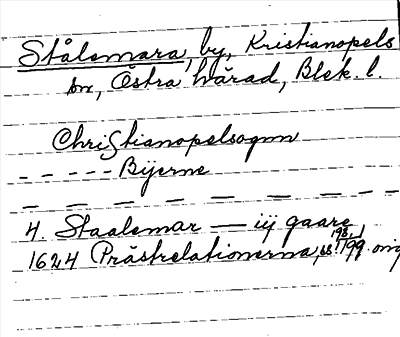 Stålemara, by, Kristianopels
sn, Östra härad, Blek. l.
Christianopelsognn
- - - - - Bÿerne
- - - - - - - - -
4. Staalemar — iij gaare
1624 Prästrelationerna, ss. 198, 199. orig